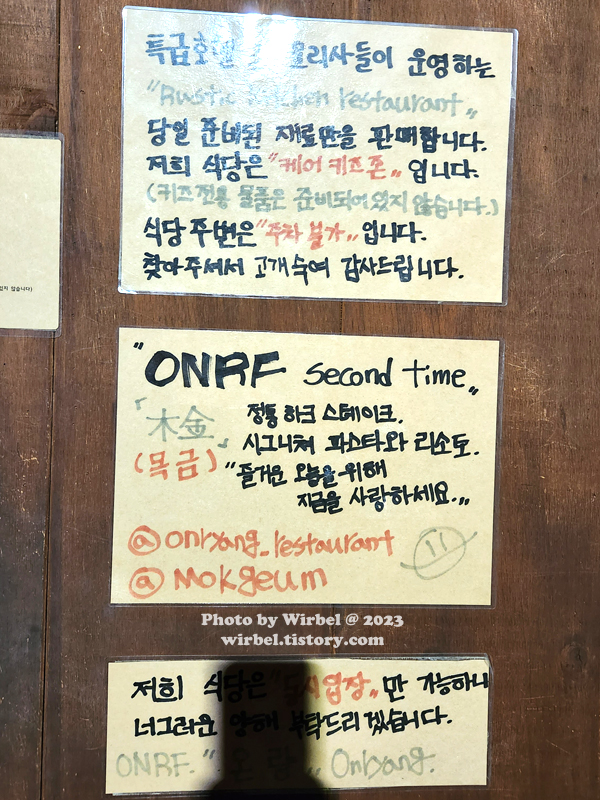 특급호텔 조리사들이 운영하는
"Rustic Kitchen restaurant"
당일 준비된 재료만을 판매합니다.
저희 식당은 "케어 키즈존" 입니다.
(키즈전용 물품은 준비되어 있지 않습니다.)
식당 주변은 "주차 불가" 입니다.
찾아주셔서 고개숙여 감사드립니다.
있지 않습니다)
"ONRF second time"
「木金」
(목금)
정통 하크 스테이크.
시그니쳐 파스타와 리소토.
"즐거운 오늘을 위해
지금을 사랑하세요."
@onryang_restaurant
@mokgeum
Photo by Wirbel @ 2023
wirbel.tistory.com
저희 식당은 "동시입장" 만 가능하니
너그러운 양해 부탁드리겠습니다.
ONRF. "온량" Onryang.